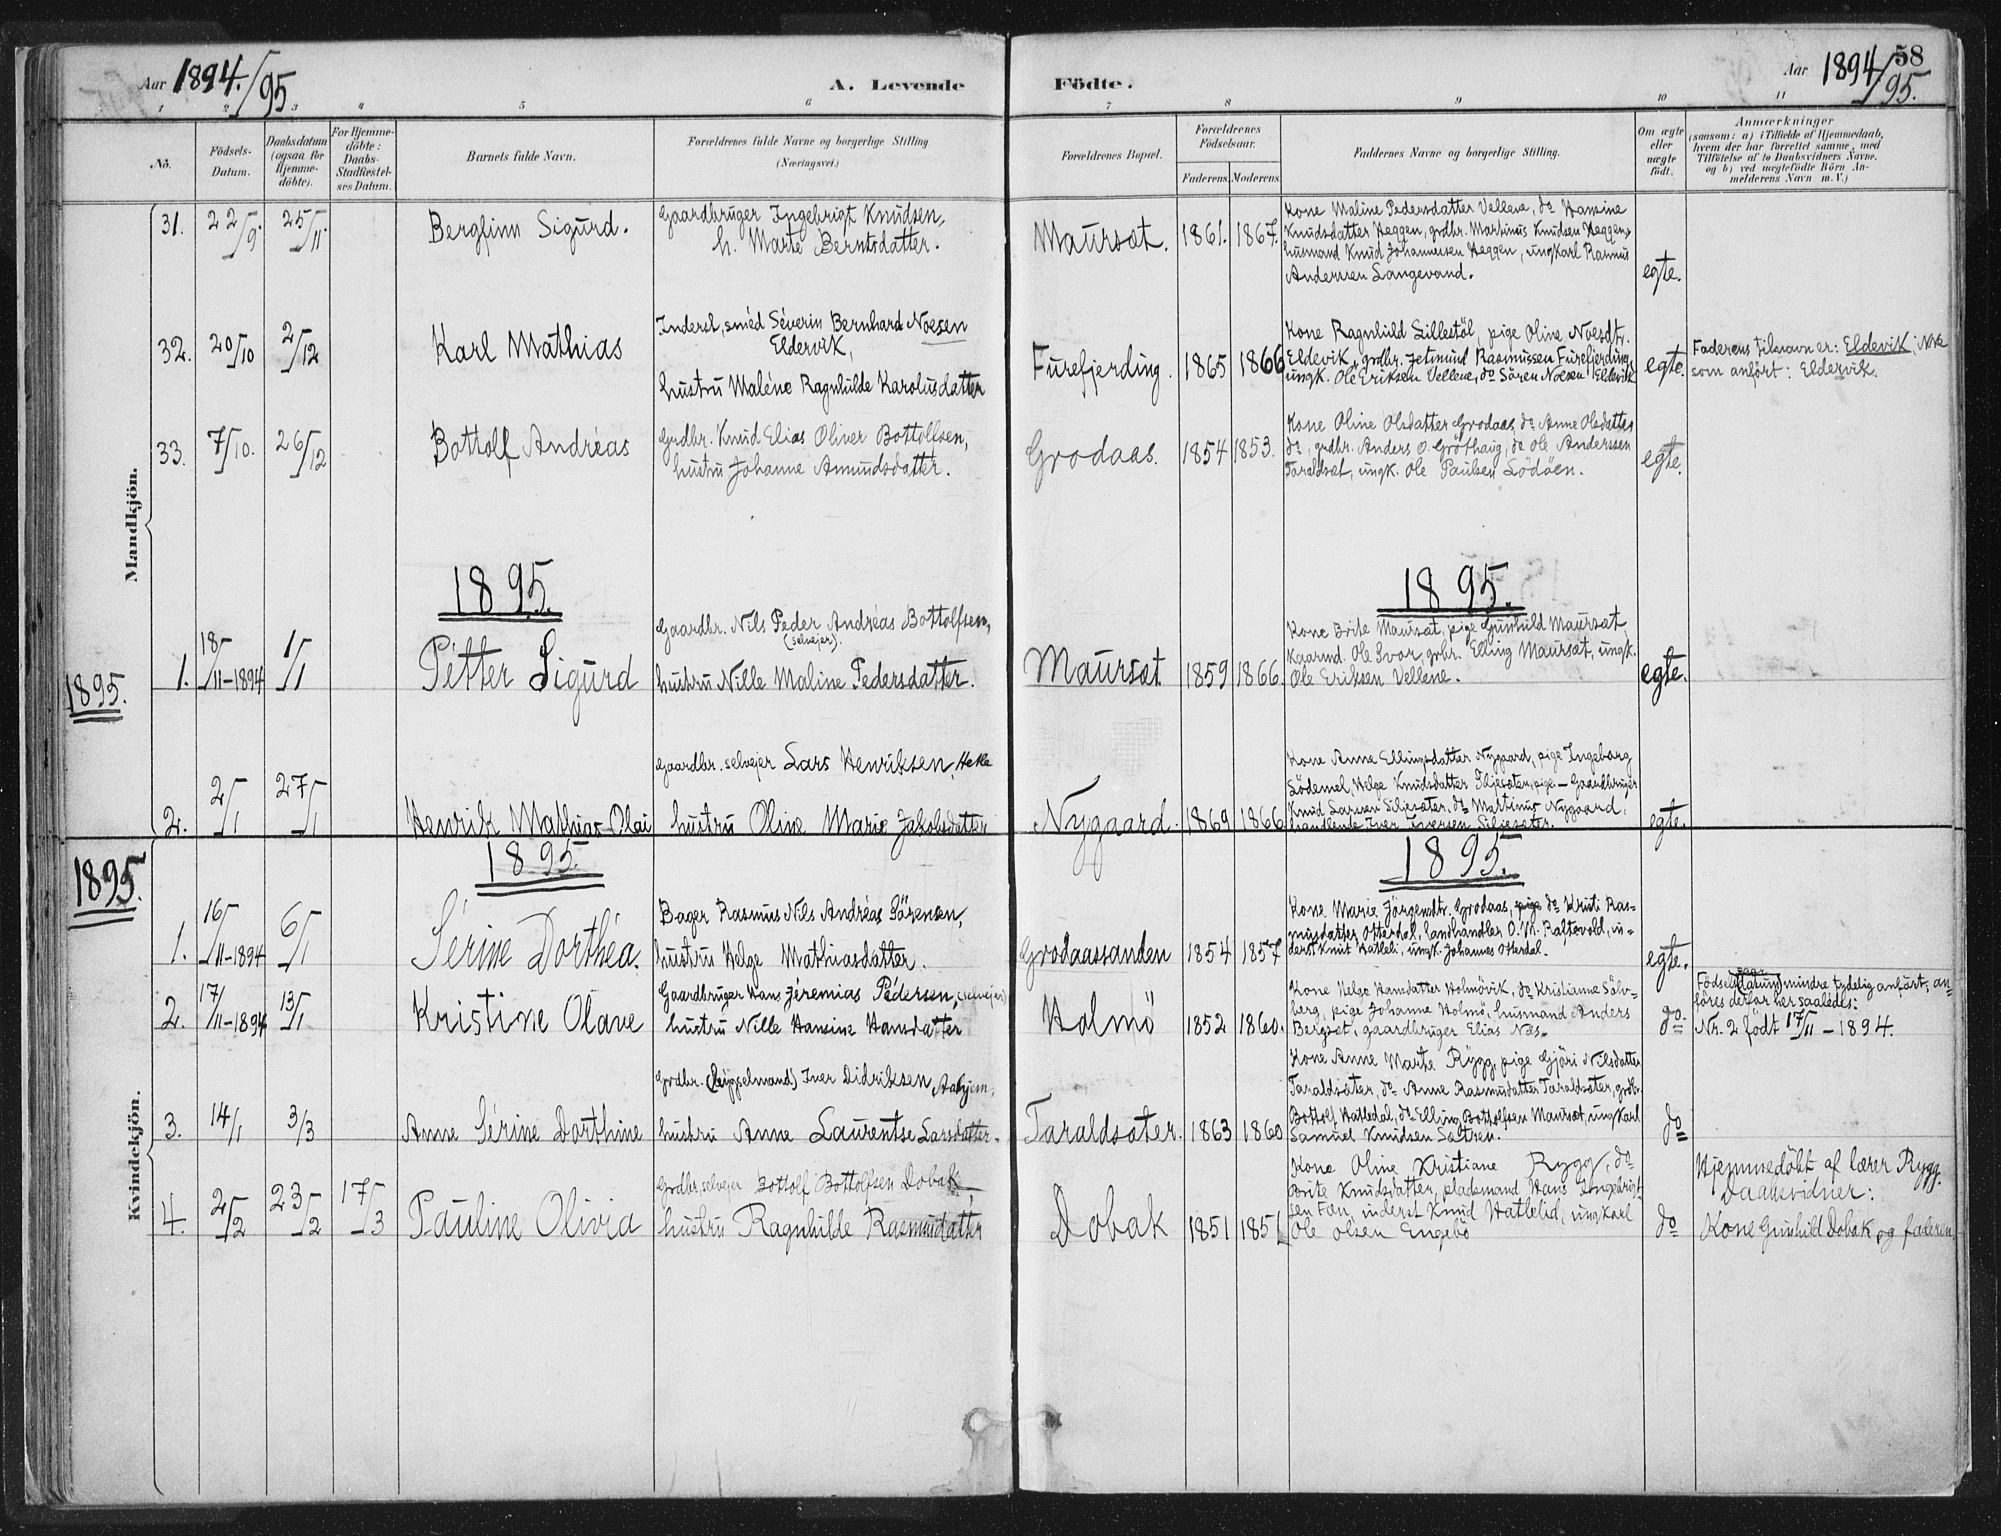 Aar 1894./95
A. Levende Födte.
Aar 1894/95.
58
1 2 3 4 5 6 7 8 9 10 11
No.
Födsels-Datum.
Daabsdatum (ogsaa for Hjemme-döbte).
For Hjemme-döbte: Daabs-Stadfæstel-ses Datum.
Barnets fulde Navn.
Forældrenes fulde Navne og borgerlige Stilling (Næringsvei.)
Forældrenes Bopæl.
Forældrenes Födselsaar.
Faderens. Moderens.
Faddernes Navne og borgerlige Stilling.
Om ægte eller uægte födt.
Anmærkninger
(saasom: a) i Tilfælde af Hjemmedaab,
hvem der har forrettet samme, med
Tilföielse af to Daabsvidners Navne,
og b) ved uægtefödte Börn An-
melderens Navn m. V.)
Mandkjön.
31. 22/9. 25/11. Bergfinn Sigurd.
Gaardbruger Ingebrigt Knudsen,
h. Marte Berntsdatter.
Maursæt. 1861. 1867.
Kone Maline Pedersdatter Vellene, do Hansine
Knudsdatter Heggen, grdbr. Martinus Knudsen Heggen,
husmand Knud Johannessen Heggen, ungkarl Rasmus
Anderssen Langevand.
egte.
32. 20/10 2/12 Karl Mathias
Inderst, smed Séverin Bernhard Noesen
Eldervik,
hustru Maléne Ragnhilde Karolusdatter
Furefjerding. 1865 1866
Kone Ragnhild Lillestöl, pige Oline Noesdtr.
Eldevik, grdbr. Jetmund Rasmussen Furefjerding,
ungk. Ole Eriksen Vellene, do Sören Noesen Eldevik
egte.
Faderens tilnavn er: Eldevik, ikke
som anfört: Eldervik.
33. 7/10. 26/12 Bottolf Andréas
Grdbr. Knud Elias Oliver Bottolfsen,
hustru Johanne Amundsdatter.
Grodaas. 1854 1853.
Kone Oline Olsdatter Grodaas, do Anne Olsdatter
do, grdbr. Anders O. Gröthaug, do Ole Anderssen
Taraldset, ungk. Ole Paulsen Lödöen.
egte.
1895.
1895.
1895.
1. 18/11-1894 1/1 Pétter Sigurd
Gaardbr. Nils Peder Andréas Bottolfsen,
(selvejer).
hustru Nille Maline Pedersdatter.
Maursæt 1859 1866.
Kone Brite Maursæt, pige Gunhild Maursæt,
Kaarmd. Ole Svor, grbr. Elling Maursæt, ungk.
Ole Eriksen Vellene.
egte.
2. 2/1 27/1 Henrik Mathias Olai
Gaardbr. selvejer Lars Henriksen,
hustru Oline Marie Jakobsdatter
Nygaard. 1869 1866
Kone Anne Ellingsdatter Nygaard, pige Ingeborg
Lödemel, Helge Knudsdatter Siljesæter, pige - Gaardbruger
Knud Larsen Siljesæter, do Martinus Nygaard,
handlende Iver Iversen Siljesæter.
egte.
1895.
1895.
1895.
Kvindekjön.
1. 16/11-1894 6/1 Sérine Dorthéa.
Bager Rasmus Nils Andréas Sörensen,
hustru Helge Mathiasdatter.
Grodaassanden 1854 1857
Kone Marie Jörgensdtr. Grodaas, pige do Kristi Ras-
musdatter Otterdal, landhandler O. M. Raftevold, in-
derst Knut Hatleli, ungk. Johannes Otterdal.
egte.
2. 17/11-1894 13/1 Kristine Olave
Gaardbruger Hans Jéremias Pedersen, (selvejer)
hustru Nille Hansine Hansdatter
Holmö 1852 1860.
Kone Helge Hansdatter Holmövik, do Kristianne Sölv-
berg, pige Johanne Holmö, husmand Anders
Bergset, gaardbruger Elias Næs.
do
Födsels(datum) mindre tydelig anfört, an-
föres derfor her saaledes:
Nr. 2 födt 17/11-1894.
3. 14/1 3/3 Anne Sérine Dorthine
Grdbr. (bygselmand) Iver Didriksen Aahjem,
hustru Anne Laurentse Larsdatter.
Taraldsæter. 1863 1860
Kone Anne Marte Rygg, pige Gjöri Nilsdatter
Taraldsæter, do Anne Rasmusdatter Taraldsæter, grdbr.
Bottolf Hatledal, do Elling Bottolfsen Maursæt, ungkarl
Samuel Knudsen Sætren.
do
4. 2/2 23/2 17/3 Pauline Olivia
Grdbr. selvejer Bottolf Bottolfsen Dobak,
hustru Ragnhilde Rasmusdatter
Dobak 1851 1851
Kone Oline Kristiane Rygg, do
Brite Knudsdatter, pladsmand Hans Ingebrigt-
sen Fan, inderst Knud Hatlelid, ungkarl
Ole Olsen Engebö
do
Hjemmedöbt af lærer Rygg.
Daabsvidner:
Kone Gunhild Dobak og faderen